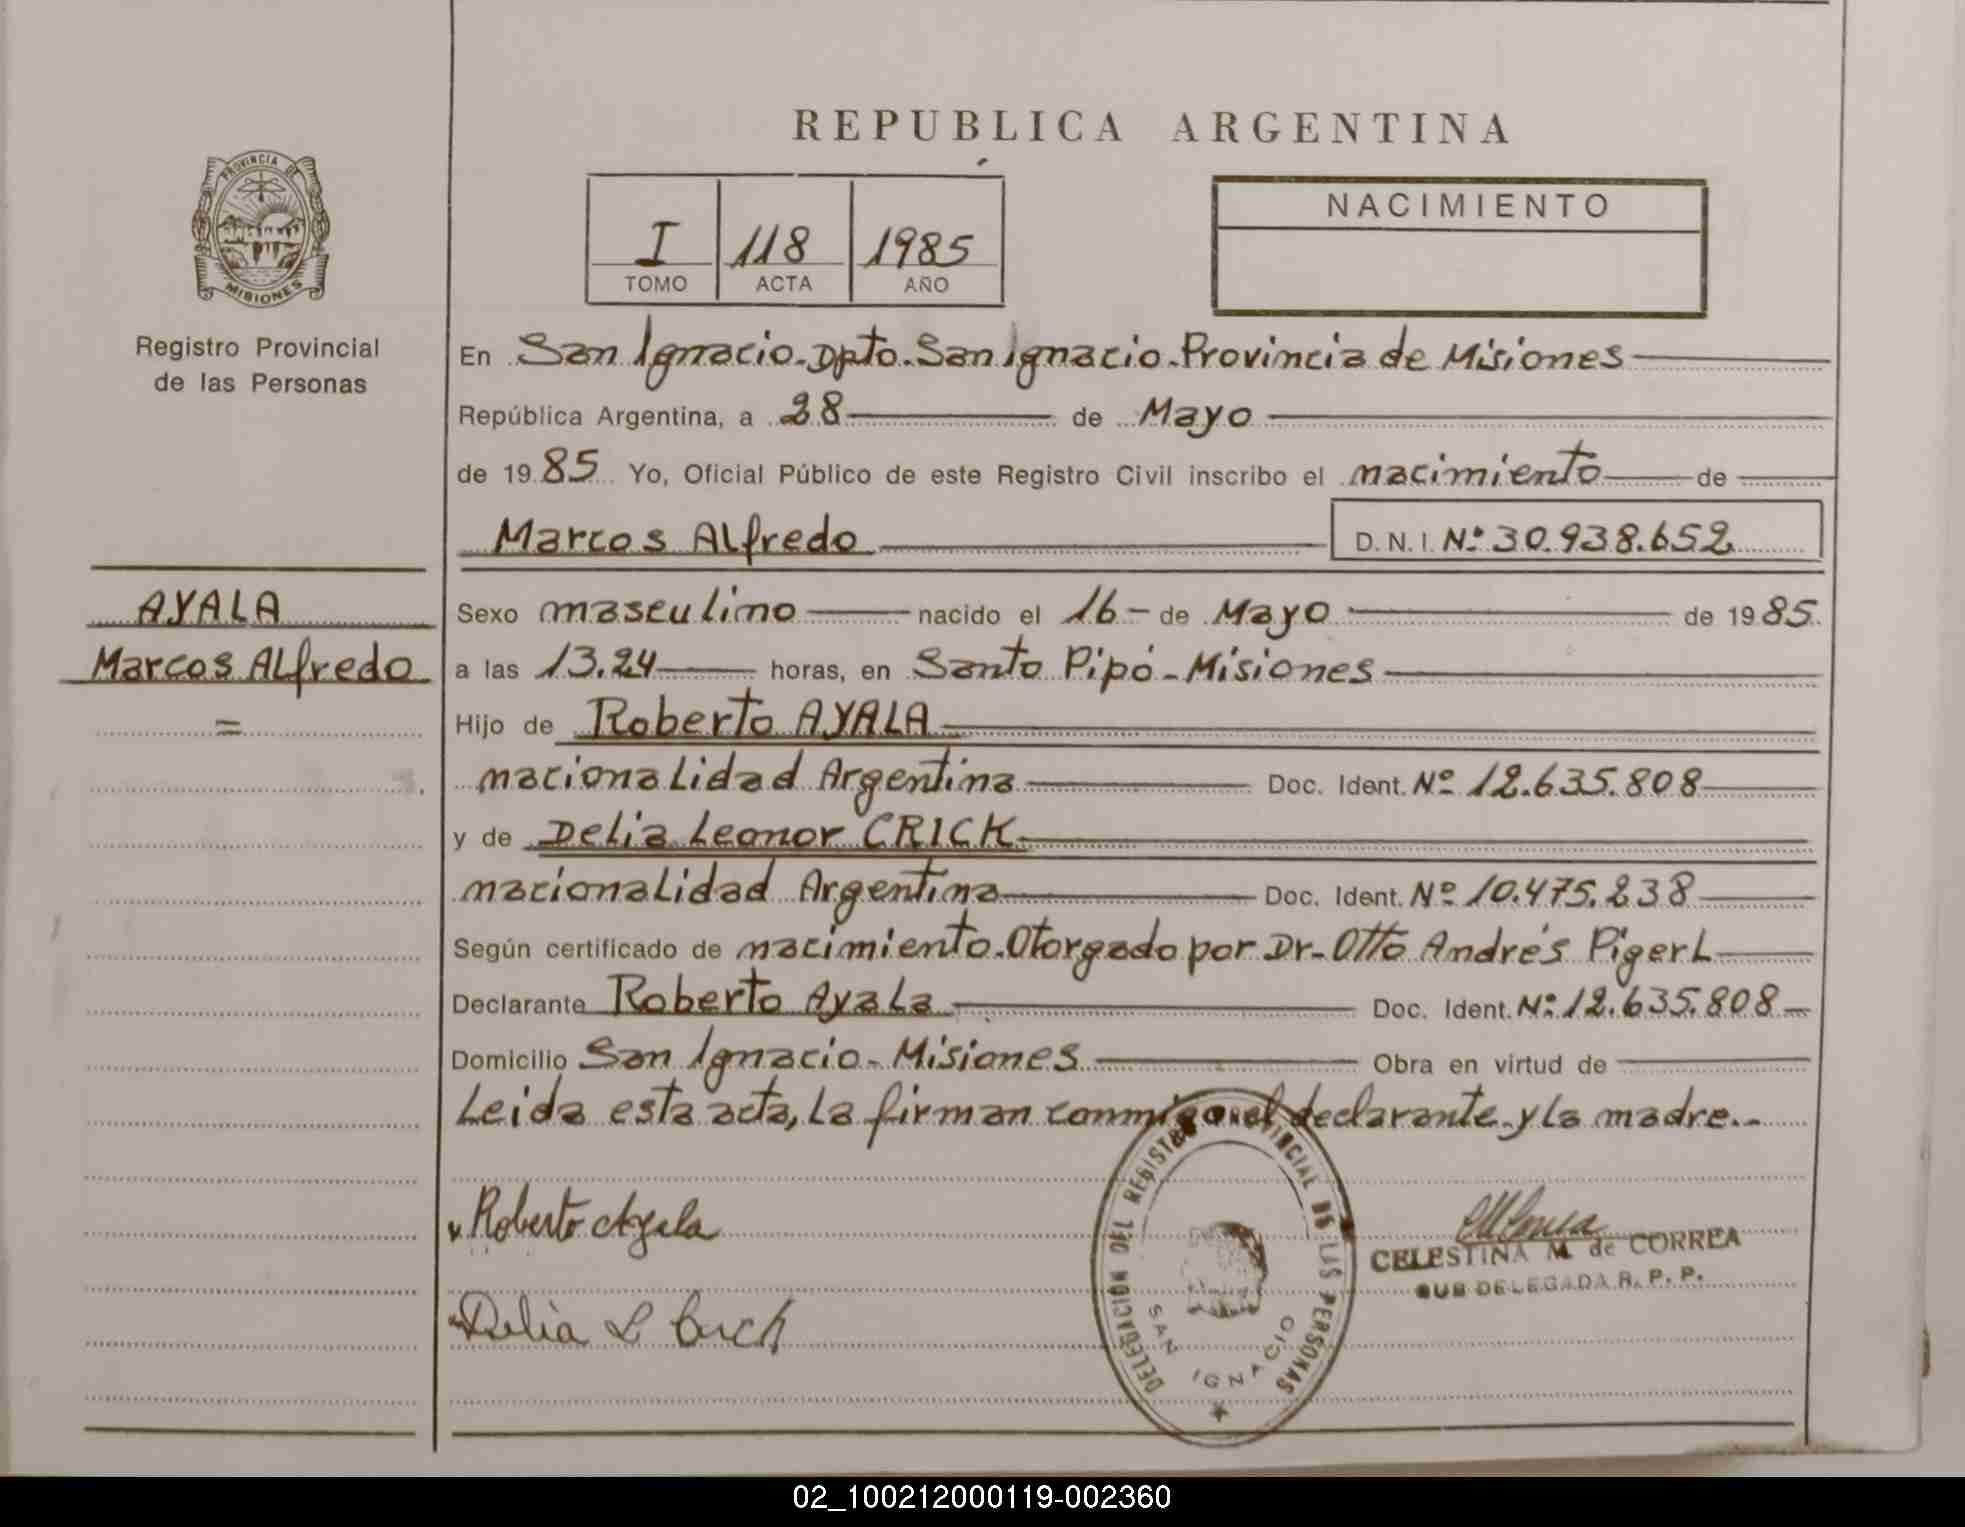 REPUBLICA ARGENTINA
PROVINCIA DE
MISIONES
Registro Provincial
de las Personas
I 118 1985
TOMO ACTA AÑO
NACIMIENTO
En San Ignacio-Dpto.San Ignacio-Provincia de Misiones
República Argentina, a 28 de Mayo
de 1985 Yo, Oficial Público de este Registro Civil inscribo el nacimiento de
Marcos Alfredo D. N. I. Nº 30.938.652
AYALA
Marcos Alfredo
=
Sexo masculino nacido el 16- de Mayo de 1985
a las 13.24 horas, en Santo Pipó-Misiones
Hijo de Roberto AYALA
nacionalidad Argentina Doc. Ident. Nº 12.635.808
y de Delia Leonor CRICK
nacionalidad Argentina Doc. Ident. Nº 10.475.238
Según certificado de nacimiento.Otorgado por Dr-Otto Andrés Pigerl
Declarante Roberto Ayala Doc. Ident. Nº 12.635.808
Domicilio San Ignacio-Misiones Obra en virtud de
Leida esta acta, la firman conmigo el declarante y la madre.-
Roberto Ayala
Delia L Crick
DELEGACION DEL REGISTRO PROVINCIAL DE LAS PERSONAS
SAN IGNACIO
CELESTINA M. de CORREA
SUB DELEGADA R. P. P.
02_100212000119-002360